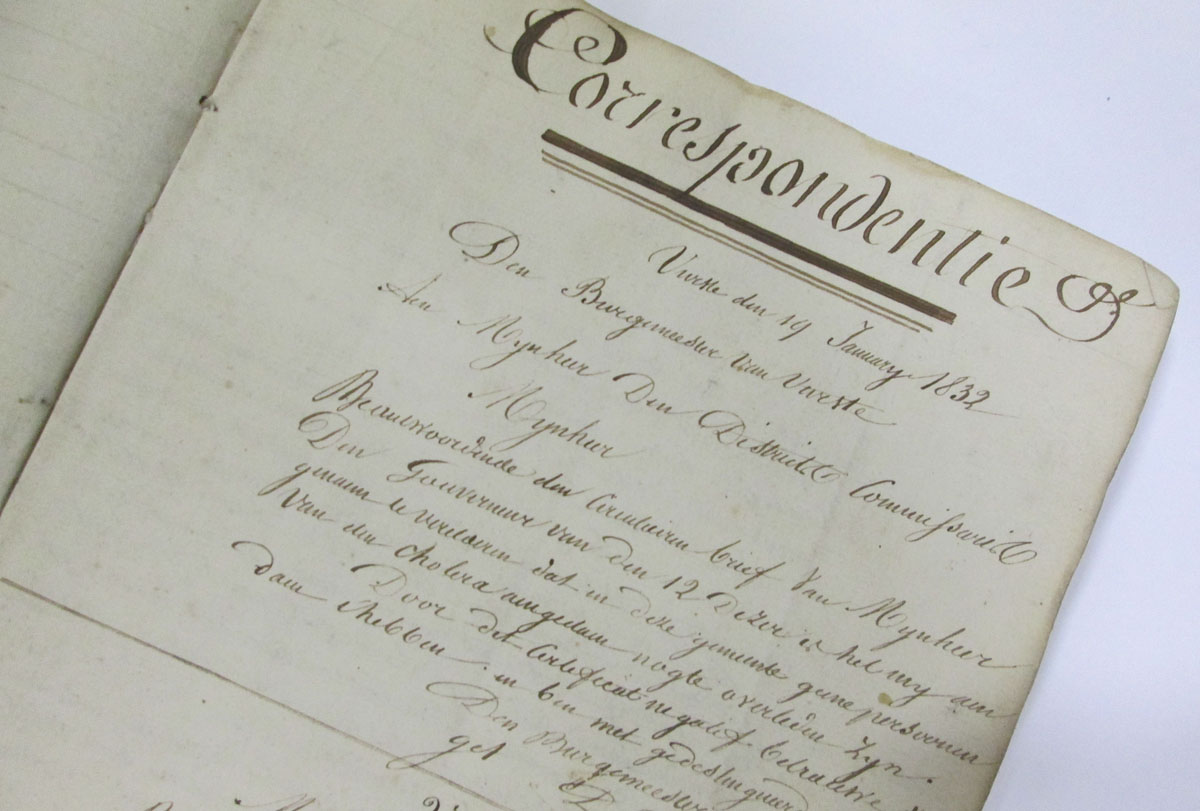 Correspondentie
Vurste den 19 January 1832
Den Burgemeester van Vurste
Aen Mynheer Den Districts Commissaris
Mynheer
Beantwoordende den Circulairen brief van Mynheer
Den Gouverneur van den 12 dezer is het my aen
genaem te verklaren dat in deze gemeente geene persoonen
van den cholera aengedaen nogte overleden zyn.
Door dit Certificaet negatief betrouwe
dane t'hebben
in ben met gedestingueer
Den Burgemeester
get